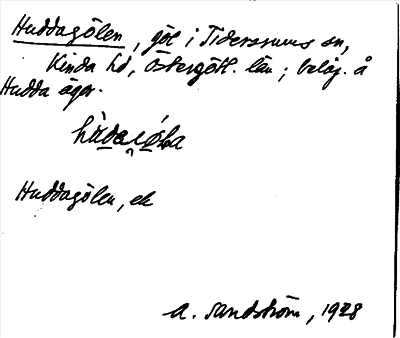 Huddagölen, göl i Tidersrums sn,
Kinda hd, Östergötl. län; beläg. å
Hudda ägor.
Huddagölen, ek
A. Sandström, 1928